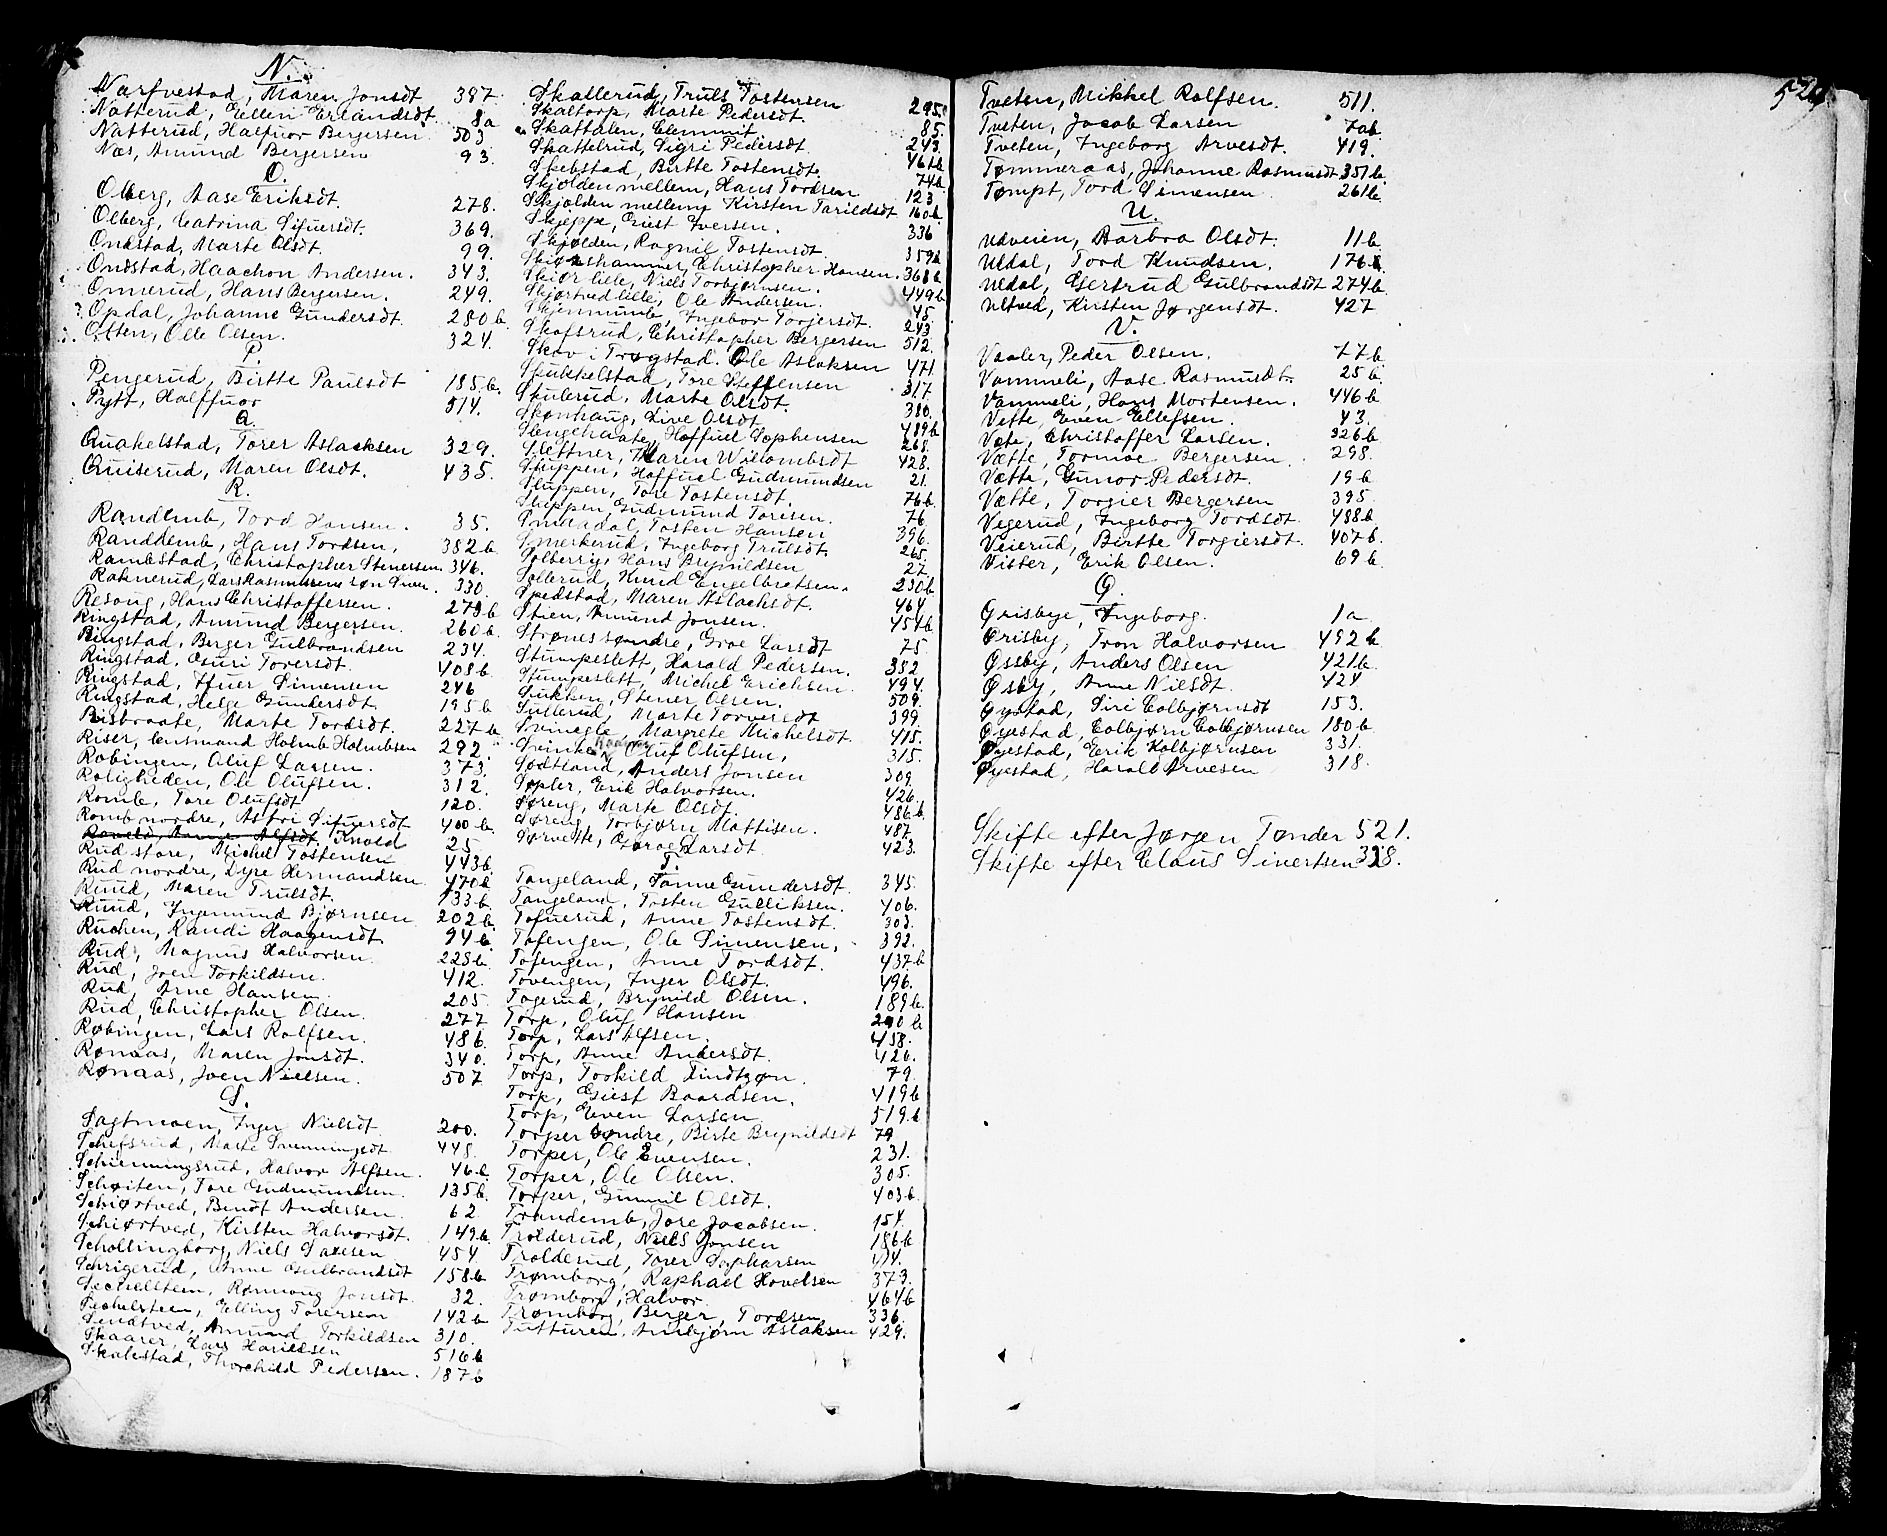 N.
Narfvestad, Maren Jonsdt 387.
Natterud, Ellen Erlandsdt. 8a
Natterud, Halfuor Bergersen 503
Næs, Amund Bergersen 93.
O.
Olberg, Aase Eriksdt. 278.
Olberg, Catrina Sifuersdt. 369.
Onestad, Marte Olsdt. 99.
Onestad, Haachon Andersen. 343.
Onnerud, Hans Bergersen. 249.
Opdal, Johanne Gundersdt. 280b.
Otten, Olle Olsen. 324.
P.
Pengerud, Birtte Paulsdt 185.b.
Pytt, Halffuor 514.
Q.
Quakelstad, Torer Aslacksen 329.
Quiserud, Maren Olsdt. 435.
R.
Randemb, Tord Hansen. 35.
Randdemb, Hans Tordsen, 382b.
Rambstad, Christopher Stenersen. 346.
Raknerud, Lars Rasmussens søn Siver. 330.
Resoug, Hans Christoffersen. 279b
Ringstad, Amund Bergersen. 260b.
Ringstad, Berger Gulbrandsen 234.
Ringstad, Guri Torersdt. 408b
Ringstad, Ifuer Simensen 246
Ringstad, Helge Gundersdt. 195b
Risbraate, Marte Tordsdt. 227b
Riser, Gusmand Holmb Holmbsen 292.
Robingen, Oluf Larsen. 373.
Roligheden, Ole Olufsen. 312.
Romb, Tore Olufsdt 120.
Romb nordre, Astri Sifuersdt 400b.
Knold 25
Rud store, Michel Tostensen 443b.
Rud nordre, Lyre Hermandsen 470b
Ruud, Maren Trulsdt. 133b.
Ruud, Ingemund Bjørnsen 202b.
Ruchen, Randi Haagensdt 94b.
Rud, Magnus Halvorsen. 225b.
Rud, Joen Torkildsen. 412.
Rud, Arne Hansen. 205.
Rud, Christopher Olsen. 277
Røbingen, Lars Rolfsen. 486.
Rønaas, Maren Jonsdt. 340.
Rønaas, Joen Nielsen. 507
S.
Sagtmoen, Inger Nielsdt 200.
Schefsrud, Marte Svenningsdt 448.
Schienningsrud, Halvor Alfsen. 46.b.
Schøiten, Tore Gudmundsen. 135b.
Schiørtved, Bendt Andersen. 62.
Schiørtved, Kirsten Halvorsdt. 149b.
Schollingborg, Niels Saxesen 454
Schrigerud, Anne Gulbrandsdt 158b
Sechelsteen, Rønnoug Jonsdt. 32.
Sechelsteen, Elling Torersen 142b
Sendtved, Amund Torkildsen 310.
Skaarer, Lars Harildsen 516b
Skalestad, Thorchild Pedersen. 187b
Skallerud, Truls Tostensen 295.
Skaltorp, Marte Pedersdt. 85.
Skattalen, Clemmit. 243.
Skattelrud, Sigri Pedersdt. 461b
Skebstad, Birtte Tostensdt. 74b
Skjolden mellem, Hans Tordsen 123
Skjolden mellem, Kirsten Tarildsdt 160b.
Skjeppe, Giest Iversen. 336
Skjolden, Ragnil Tostensdt. 359b
Skiønshammer, Christopher Hansen. 368b
Skiør lille, Niels Torbjørnsen. 449b
Skjortved lille, Ole Andersen. 45.
Skjennumb, Ingebor Torjersdt. 243
Skofsrud, Christopher Bergersen 512.
Skov i Trøgstad. Ole Aslaksen 471
Skukkelstad, Tore Steffensen 317.
Skulerud, Marte Olsdt. 380.
Skønhaug, Live Olsdt. 489b
Slengehaate, Haffuel Sophensen 268.
Slettner, Maren Willombsdt 428.
Sluppen, Haffuel Gudmundsen 21.
Sluppen, Tore Tostensdt. 76b
Sluppen, Gudmund Torisen. 76
Smedadal, Tosten Hansen 396.
Smerkerud, Ingeborg Trulsdt 265.
Solberg, Hans Brynildsen 27.
Sollerud, Knud Engelbretsen. 230b
Spedstad, Maren Aslachsdt. 464
Stien, Amund Jonsen. 454b
Strønes søndre, Groe Larsdt 75.
Stumpeslett, Harald Pedersen. 352
Stumpeslett, Michel Erichsen. 494.
Sukken, Stener Olsen. 509.
Sullerud, Marte Torversdt 399.
Svinegle, Margrete Michelsdt. 415.
Svinke, Oluf Olufsen, 315.
Sødtland, Anders Jonsen 309
Søpler, Erik Halvorsen. 426.
Søreng, Marte Olsdt. 486b.
Søreng, Torbjørn Mattisen. 487.
Sørvette, Groe Larsdt. 423.
T.
Tangeland, Tønne Gundersdt. 345.
Tangeland, Tosten Gulliksen. 406.
Tofuerud, Anne Tostensdt. 303.
Tofengen, Ole Simensen, 392.
Tofengen, Anne Tordsdt. 437.b
Tovengen, Inger Olsdt. 496.
Togerud, Brynild Olsen. 189b.
Torp, Oluf Hansen 290b
Torp, Lars Alfsen. 458.
Torp, Anne Andersdt. 426.
Torp, Torkild Findtzøn. 79.
Torp, Giest Baardsen. 419b
Torp, Even Larsen 519.b
Torper søndre, Birte Brynildsdt 79
Torper, Ole Evensen. 231.
Torper, Ole Olsen. 305.
Torper, Gunnil Olsdt. 403b.
Trandemb, Tore Jacobsen. 154.
Trolderud, Niels Jonsen 186b
Trolderud, Torer Sopharsen 414.
Trømborg, Raphael Hovelsen 373.
Trømborg, Halvor 464b
Trømborg, Berger, Tordsen 336.
Tutturen. Anbjørn Aslaksen 429.
524
Tveten, Mikkel Rolfsen. 511.
Tveten, Jacob Larsen 70b.
Tveten, Ingeborg Arvesdt. 419.
Tømmeraas, Johanne Rasmusdt 351b.
Tømpt, Tord Simensen 261b.
U.
Udveien, Barbra Olsdt. 11b.
Uldal, Tord Knudsen. 176b.
Uldal, Gertrud Gulbrandsdt 274b.
Ultved, Kirsten Jørgensdt. 427
V.
Vaaler, Peder Olsen. 77b
Vammeli, Aase Rasmusdt. 25b.
Vammeli, Hans Mortensen. 446b
Vette, Even Ellefsen. 43.
Væte, Christoffer Larsen. 326b
Vætte, Tormoe Bergersen. 298.
Vætte, Gunor Pedersdt. 19b
Vætte, Torgier Bergersen 395
Vegerud, Ingeborg Tordsdt. 488b
Veierud, Birtte Torgiersdt. 407b.
Vister, Erik Olsen. 69b.
Ø.
Ørisbye, Ingeborg. 1a
Ørisby, Tron Halvorsen 492b
Øssby, Anders Olsen 421b.
Øsby, Anne Nilsdt. 424
Øystad, Siri Colbjørnsdt 153.
Øyestad, Colbjørn Colbjørnsen 180b
Øyestad, Erik Kolbjørnsen 331.
Øyestad, Harald Arvesen 318.
Skifte efter Jørgen Tønder 521.
Skifte efter Claus Sivertsen 328.